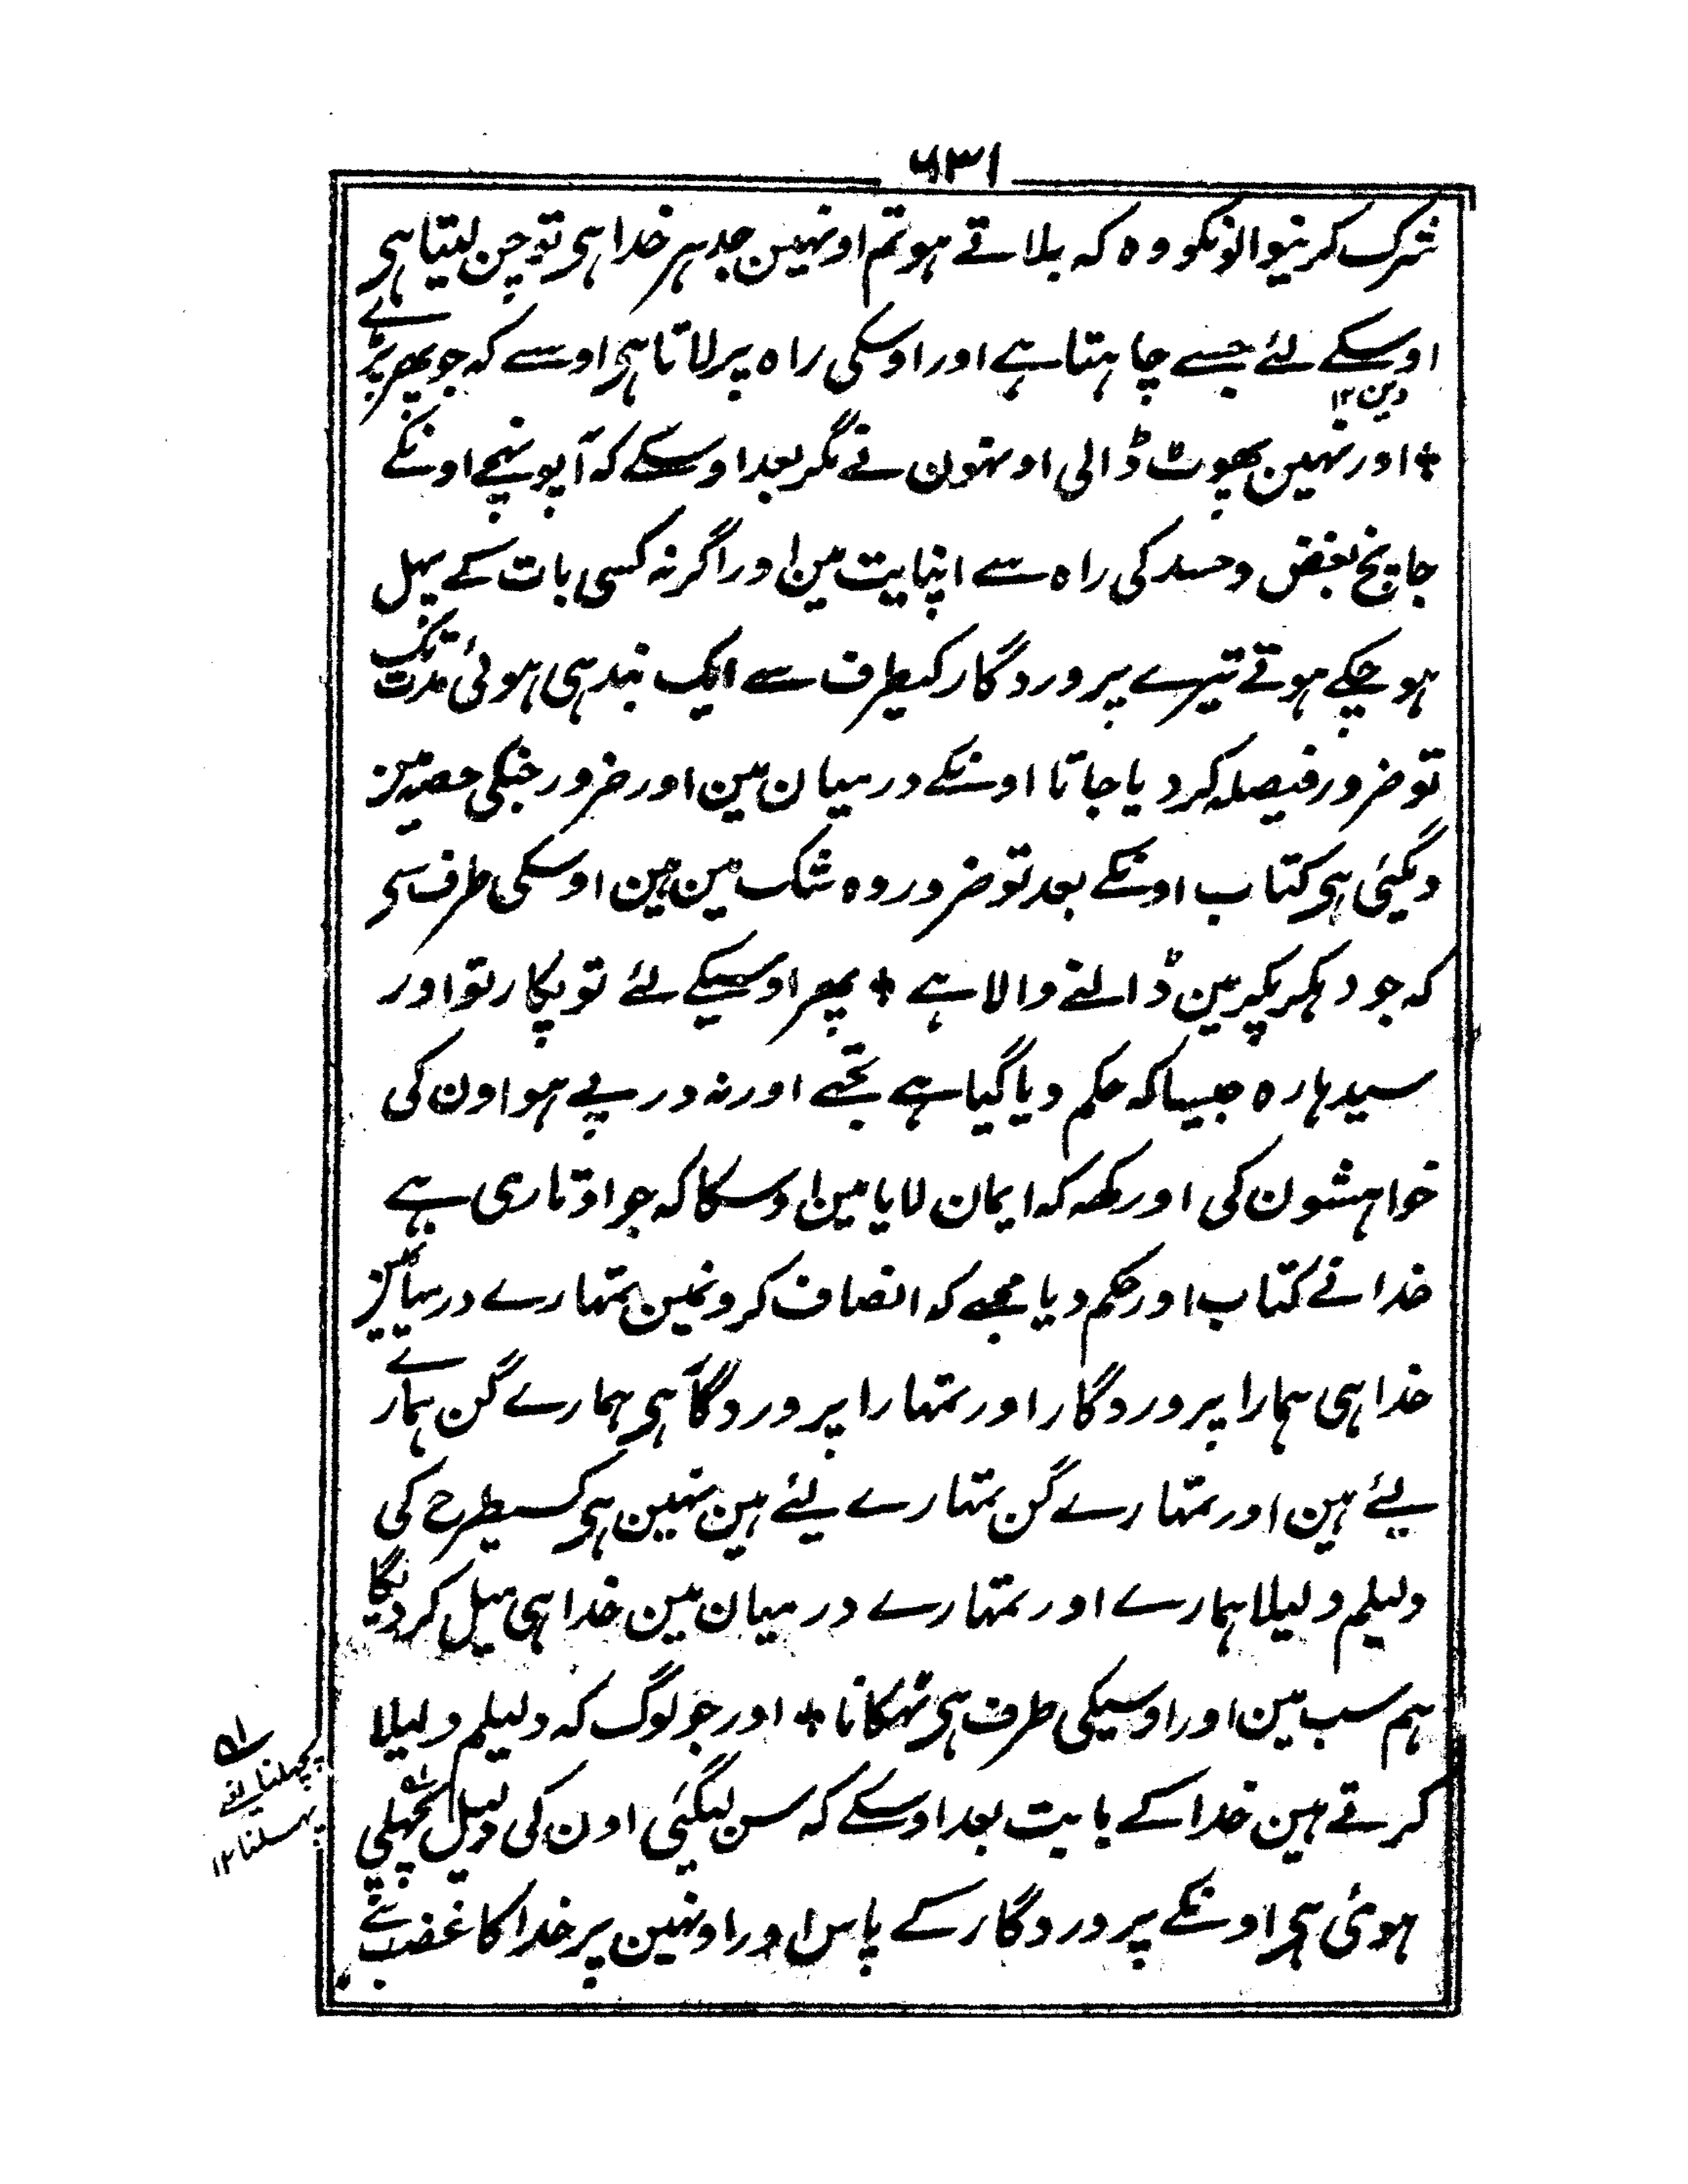 ٦٣١
شرک کرنیوالونکو وہ کہ بلاتے ہو تم اونہین جدہر خدا ہی تو چن لیتا ہی
اوسکے لئے جسے چاہتا ہے اور اوسکی راہ پر لاتا ہی اوسے کہ جو پھر پڑے
دین ١٢
+ اور نہین پھوٹ ڈالی اونہون نے مگر بعد اوسکے کہ آپونہچے اونکے
جانچ بغض و حسد کی راہ سے اپنایت مین اور اگر نہ کسی بات کے پہل
ہو چکے ہوتے تیرے پروردگار کیطرف سے ایک بندہی ہوئی مدت تک
تو ضرور فیصلہ کر دیا جاتا اونکے درمیان مین اور ضرور جنکی حصہ مین
دیگئی ہی کتاب اونکے بعد تو ضرور وہ شک مین ہین اوسکی طرف سی
کہ جو دہکر پکر مین ڈالنے والا ہے + پھر اوسیکے لئے تو پکار تو اور
سیدہا رہ جیسا کہ حکم دیا گیا ہے تجھے اور نہ درپے ہو اون کی
خواہشون کی اور کہہ کہ ایمان لایا مین اوسکا کہ جو اوتاری ہے
خدا نے کتاب اور حکم دیا مجھے کہ انصاف کرونمین تمہارے درمیانمین
خدا ہی ہمارا پروردگار اور تمہارا پروردگار ہی ہمارے گن ہمارے
لئے ہین اور تمہارے گن تمہارے لیئے ہین نہین ہی کسیطرح کی
دلیلم دلیلا ہمارے اور تمہارے درمیان مین خدا ہی میل کر دیگا
ہم سب مین اور اوسیکی طرف ہی ٹہکانا + اور جو لوگ کہ دلیلم دلیلا
کرتے ہین خدا کے بابت بعد اوسکے کہ سن لیگئی اون کی دلیل پچھلی
ہوئی ہی اونکے پروردگار کے پاس اور اونہین پر خدا کا غضب ہے
پچھلنا یعنے
پہسلنا ١٢